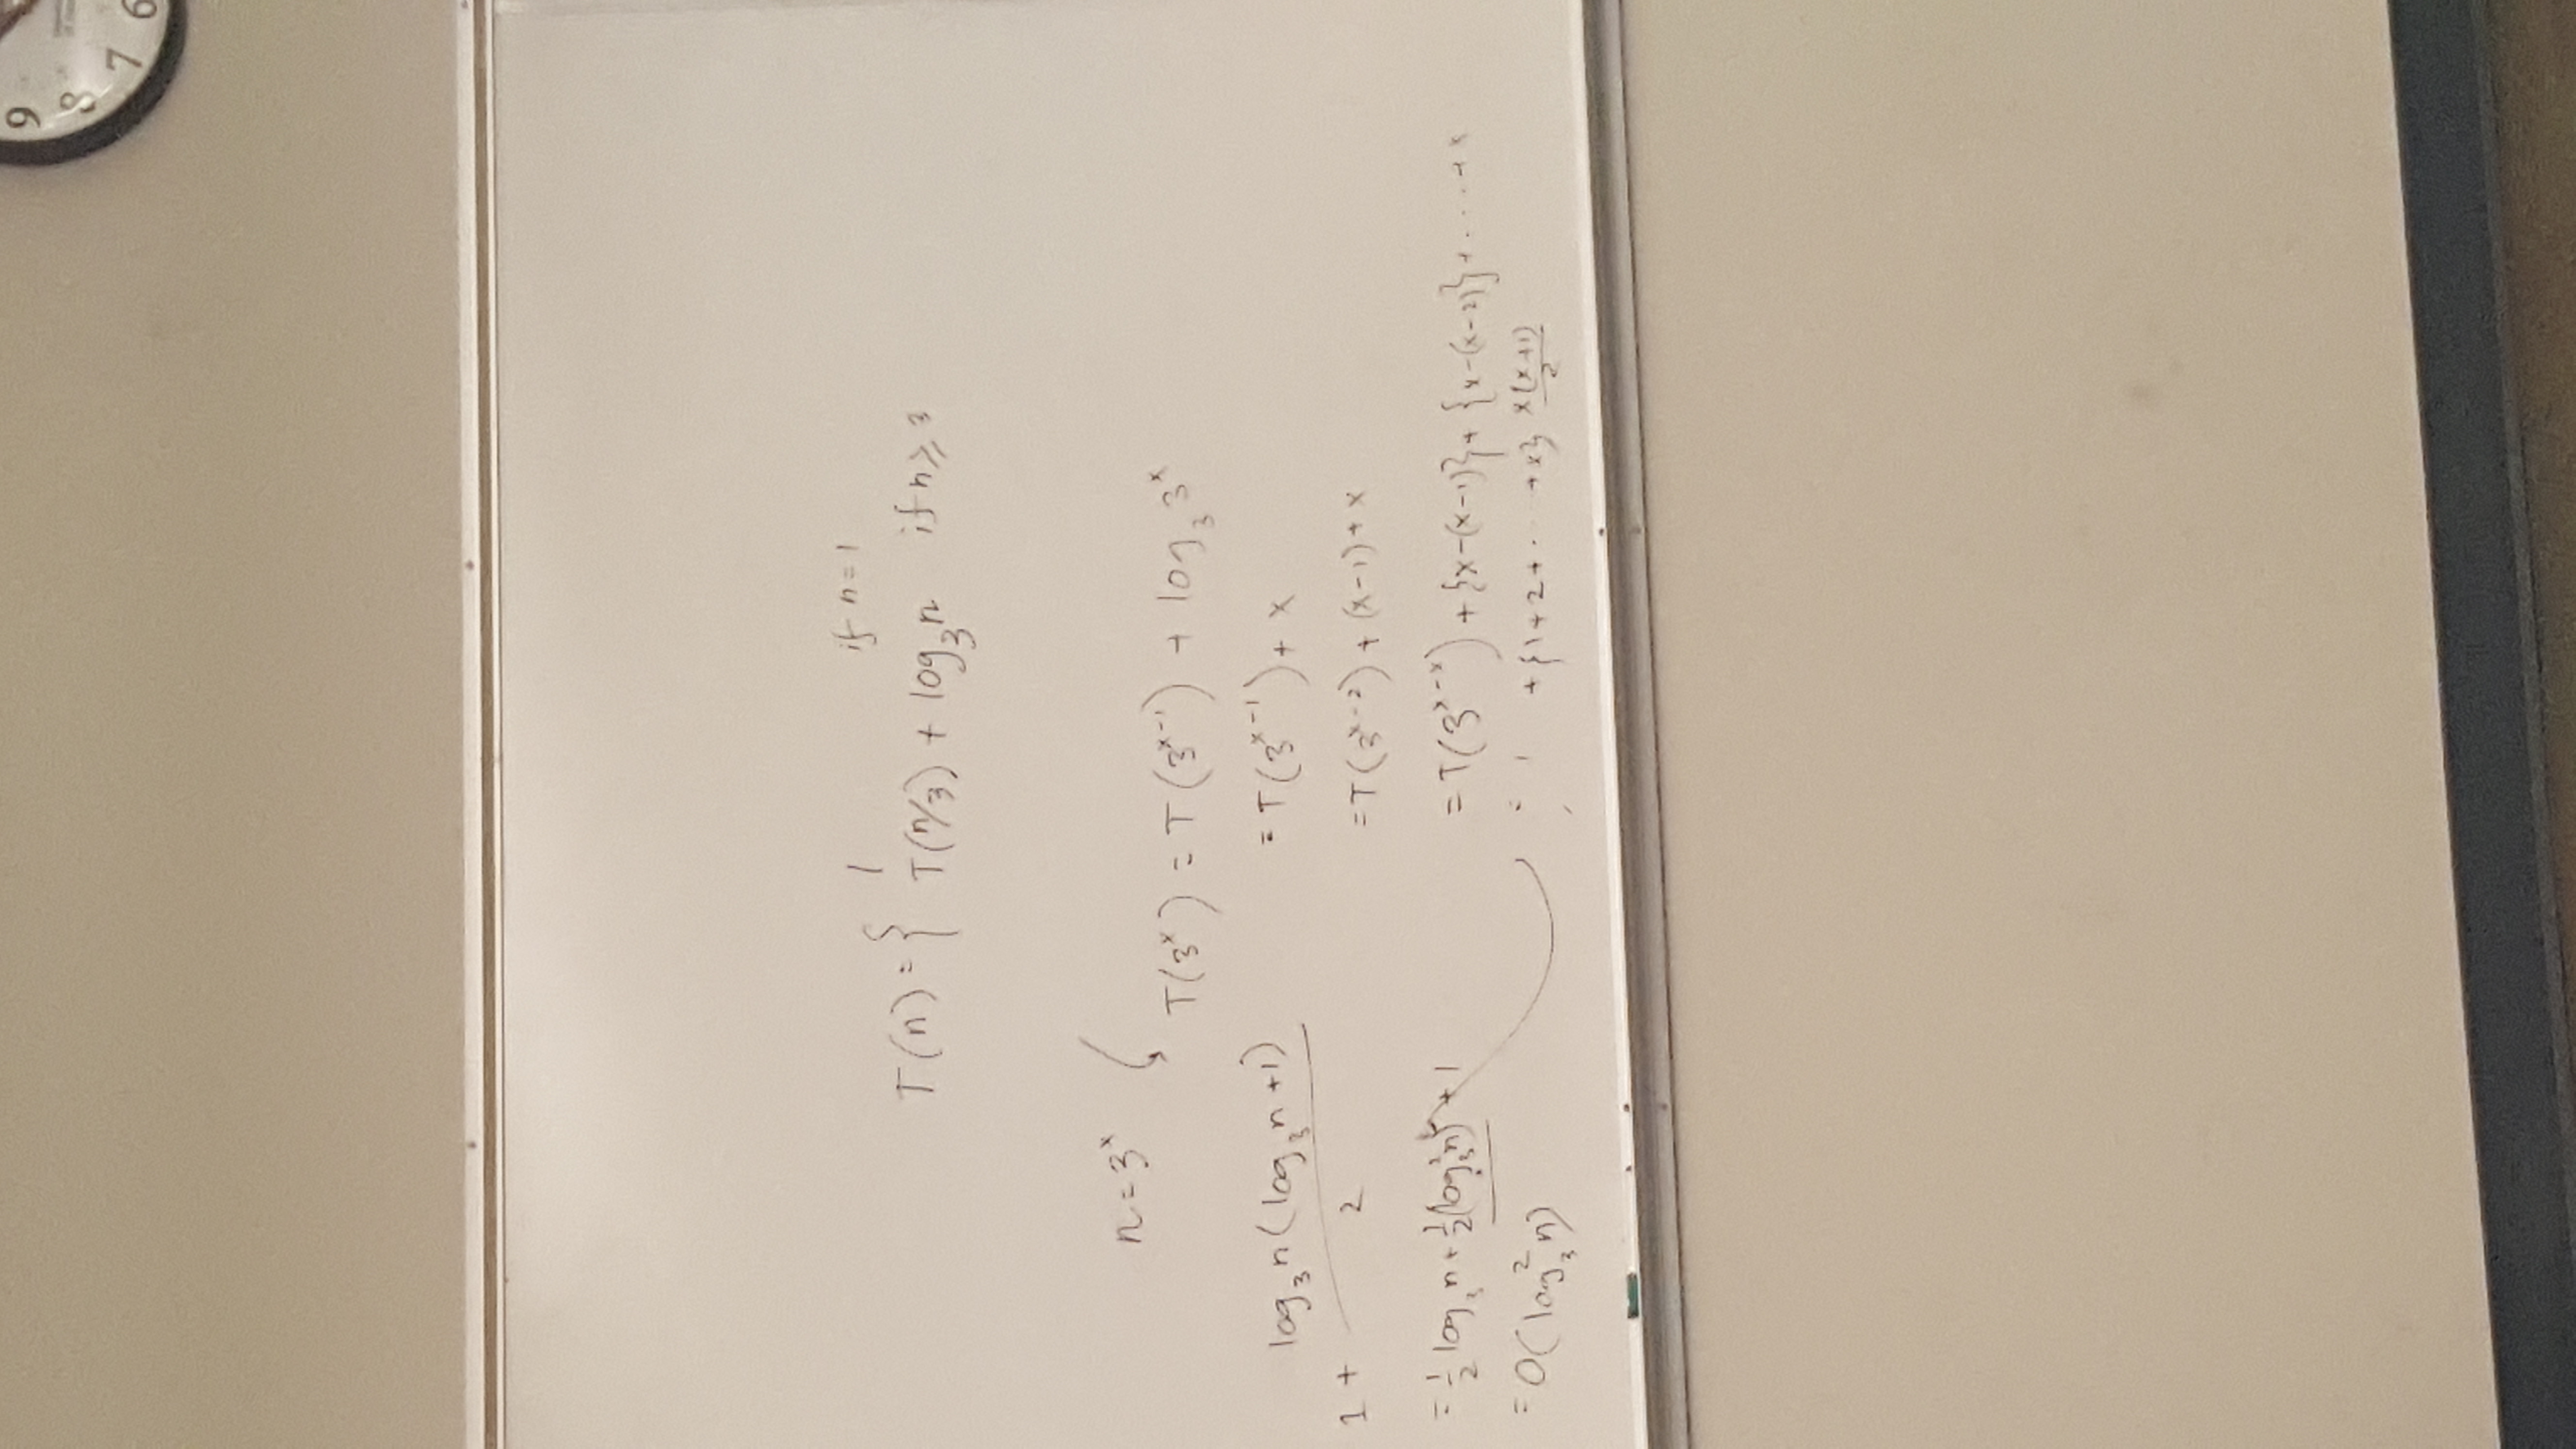 9
8
7
6
T(n) = { 1 if n = 1
T(n/3) + log₃n if n ⩾ 3
n = 3ˣ
T(3ˣ) = T(3ˣ⁻¹) + log₃3ˣ
= T(3ˣ⁻¹) + x
= T(3ˣ⁻²) + (x-1) + x
= T(3ˣ⁻ˣ) + {x-(x-1)} + {x-(x-2)} + .... + x
= 1 + {1+2+ .. +x} x(x+1)/2
1 + log₃n(log₃n+1)/2
= ½ log₃n + ½(log₃n)² + 1
= O(log₃²n)